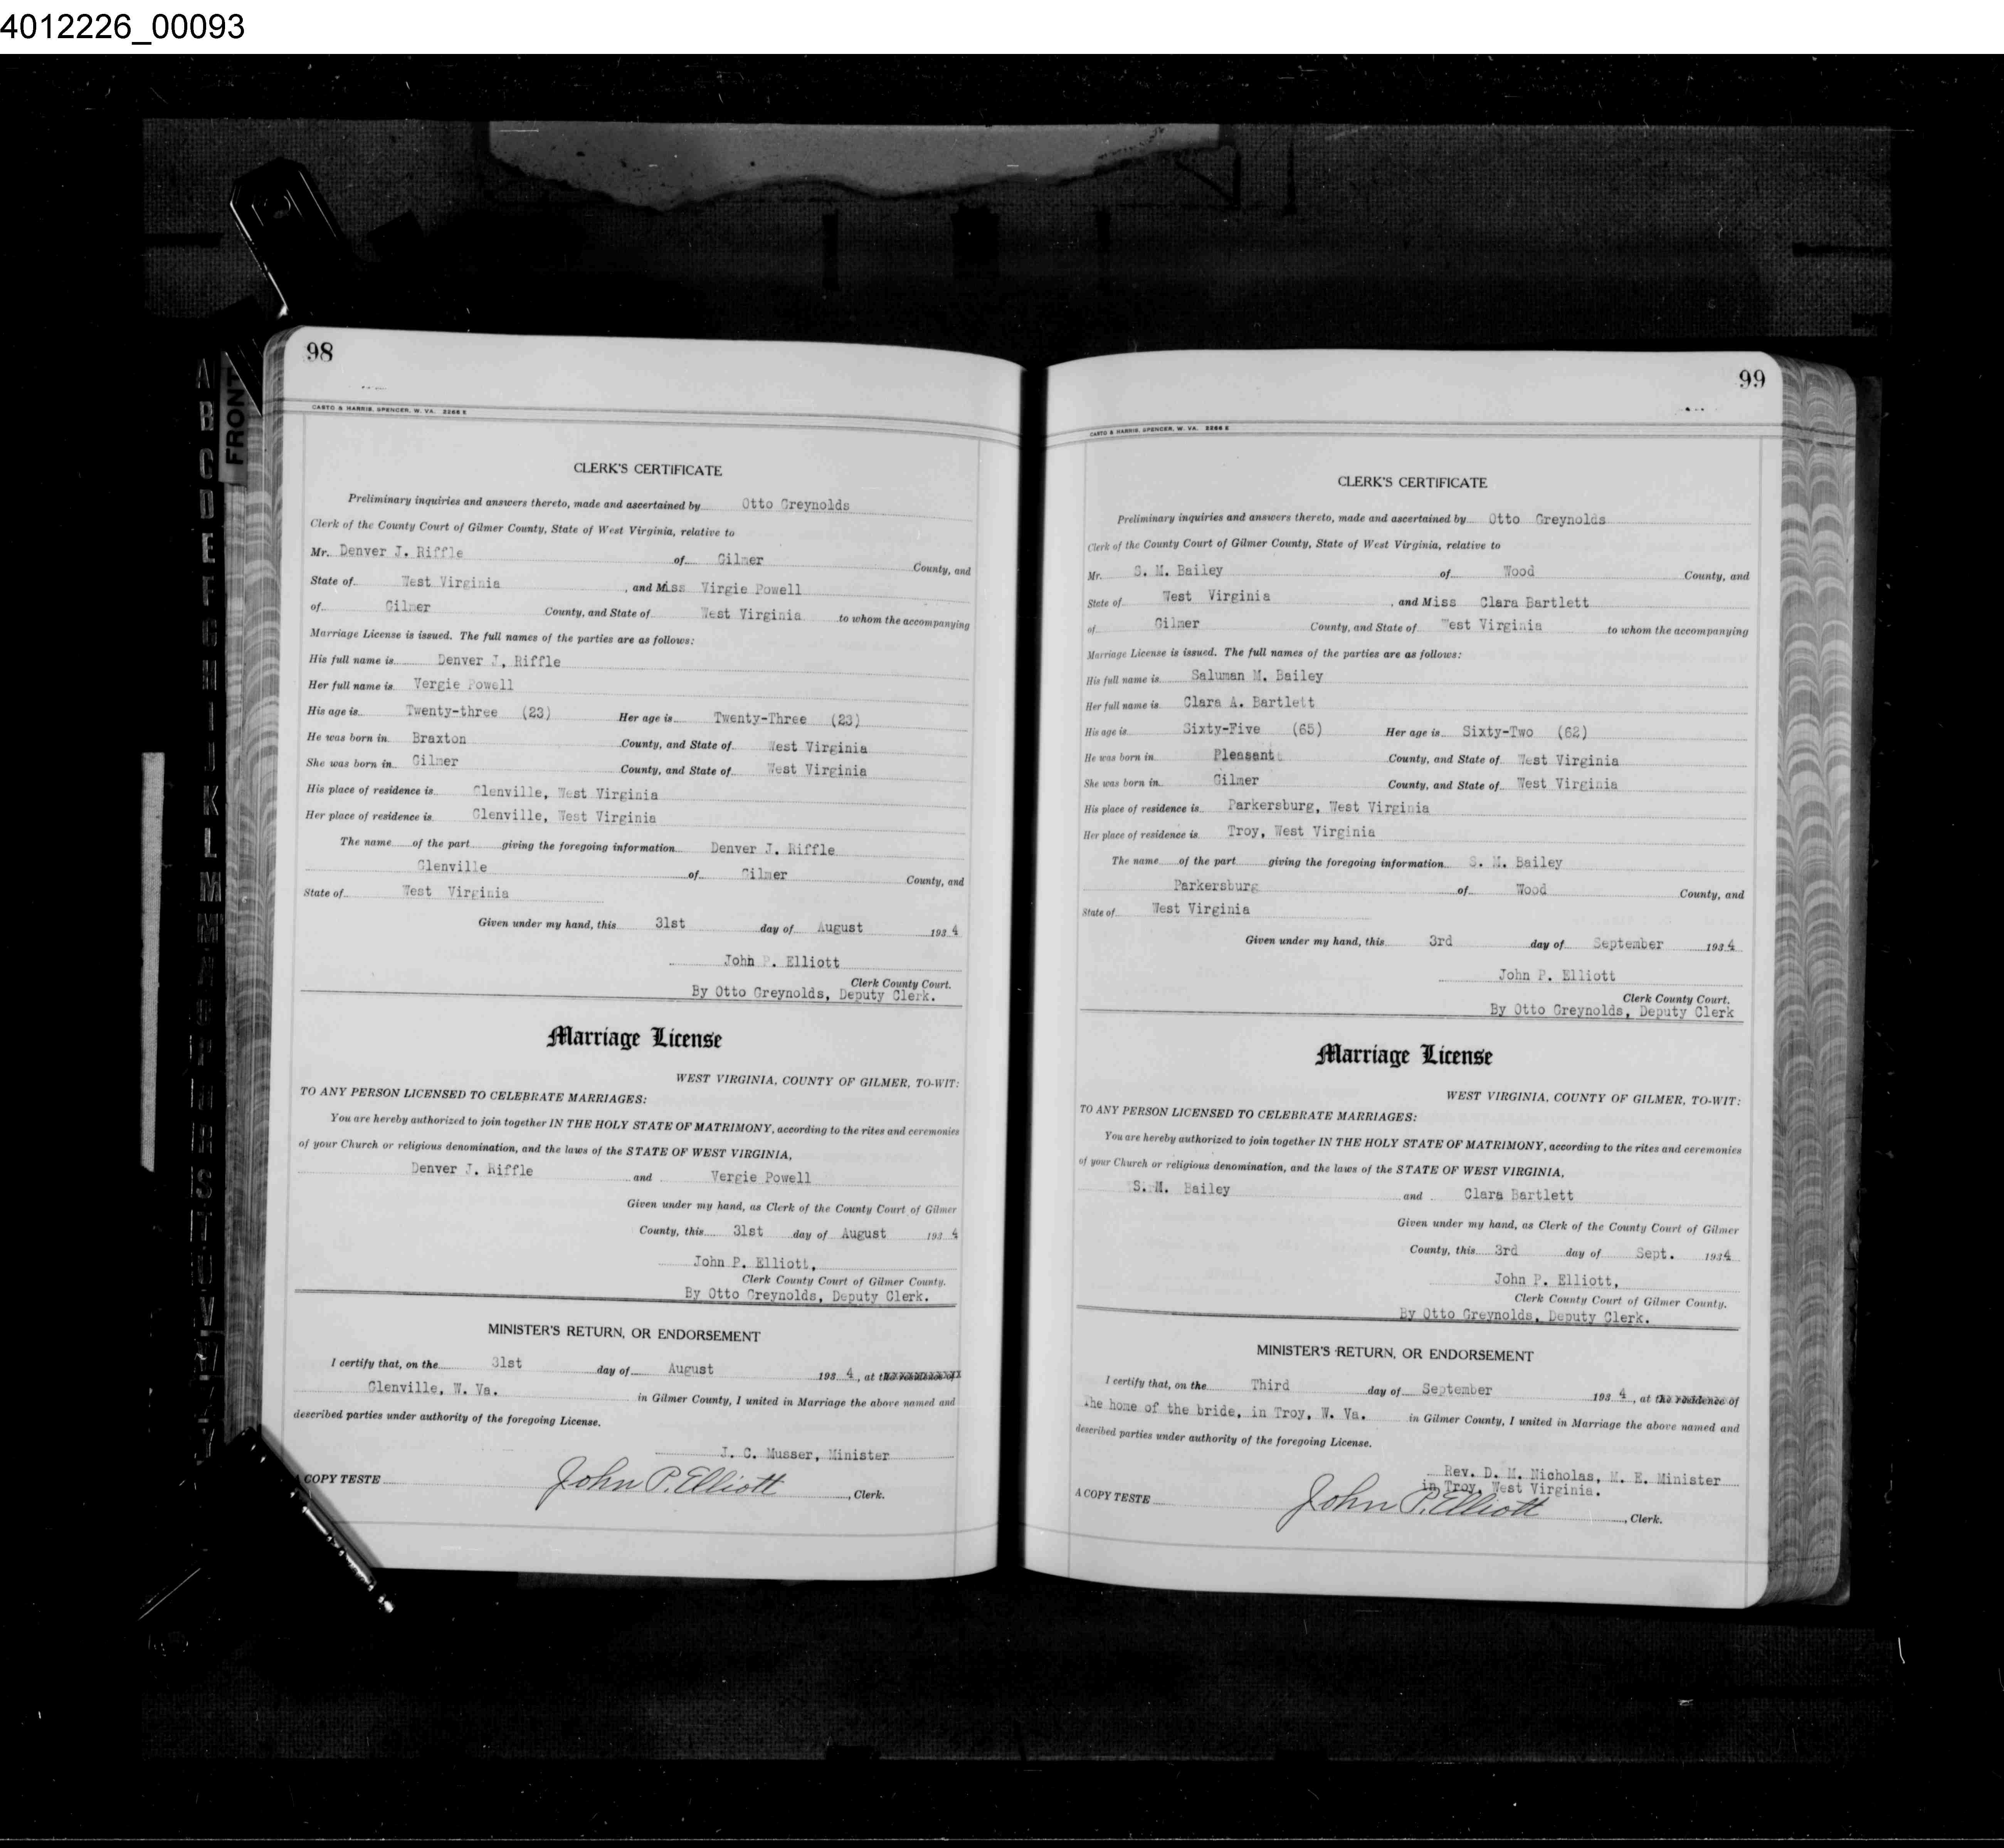 4012226_00093
98
CASTO & HARRIS, SPENCER, W. VA. 2266 E
CLERK'S CERTIFICATE
Preliminary inquiries and answers thereto, made and ascertained by Otto Greynolds
Clerk of the County Court of Gilmer County, State of West Virginia, relative to
Mr. Denver J. Riffle of Gilmer County, and
State of West Virginia, and Miss Virgie Powell
of Gilmer County, and State of West Virginia to whom the accompanying
Marriage License is issued. The full names of the parties are as follows:
His full name is Denver J. Riffle
Her full name is Vergie Powell
His age is Twenty-three (23) Her age is Twenty-Three (23)
He was born in Braxton County, and State of West Virginia
She was born in Gilmer County, and State of West Virginia
His place of residence is Glenville, West Virginia
Her place of residence is Glenville, West Virginia
The name of the part giving the foregoing information Denver J. Riffle
Glenville of Gilmer County, and
State of West Virginia
Given under my hand, this 31st day of August 1934
John P. Elliott
Clerk County Court.
By Otto Greynolds, Deputy Clerk.
Marriage License
WEST VIRGINIA, COUNTY OF GILMER, TO-WIT:
TO ANY PERSON LICENSED TO CELEBRATE MARRIAGES:
You are hereby authorized to join together IN THE HOLY STATE OF MATRIMONY, according to the rites and ceremonies
of your Church or religious denomination, and the laws of the STATE OF WEST VIRGINIA,
Denver J. Riffle and Vergie Powell
Given under my hand, as Clerk of the County Court of Gilmer
County, this 31st day of August 1934
John P. Elliott,
Clerk County Court of Gilmer County.
By Otto Greynolds, Deputy Clerk.
MINISTER'S RETURN, OR ENDORSEMENT
I certify that, on the 31st day of August 1934, at the residence of
Glenville, W. Va. in Gilmer County, I united in Marriage the above named and
described parties under authority of the foregoing License.
J. C. Musser, Minister
A COPY TESTE John P. Elliott, Clerk.
99
CASTO & HARRIS, SPENCER, W. VA. 2266 E
CLERK'S CERTIFICATE
Preliminary inquiries and answers thereto, made and ascertained by Otto Greynolds
Clerk of the County Court of Gilmer County, State of West Virginia, relative to
Mr. S. M. Bailey of Wood County, and
State of West Virginia, and Miss Clara Bartlett
of Gilmer County, and State of West Virginia to whom the accompanying
Marriage License is issued. The full names of the parties are as follows:
His full name is Saluman M. Bailey
Her full name is Clara A. Bartlett
His age is Sixty-Five (65) Her age is Sixty-Two (62)
He was born in Pleasants County, and State of West Virginia
She was born in Gilmer County, and State of West Virginia
His place of residence is Parkersburg, West Virginia
Her place of residence is Troy, West Virginia
The name of the part giving the foregoing information S. M. Bailey
Parkersburg of Wood County, and
State of West Virginia
Given under my hand, this 3rd day of September 1934
John P. Elliott
Clerk County Court.
By Otto Greynolds, Deputy Clerk
Marriage License
WEST VIRGINIA, COUNTY OF GILMER, TO-WIT:
TO ANY PERSON LICENSED TO CELEBRATE MARRIAGES:
You are hereby authorized to join together IN THE HOLY STATE OF MATRIMONY, according to the rites and ceremonies
of your Church or religious denomination, and the laws of the STATE OF WEST VIRGINIA,
S. M. Bailey and Clara Bartlett
Given under my hand, as Clerk of the County Court of Gilmer
County, this 3rd day of Sept. 1934
John P. Elliott,
Clerk County Court of Gilmer County.
By Otto Greynolds, Deputy Clerk.
MINISTER'S RETURN, OR ENDORSEMENT
I certify that, on the Third day of September 1934, at the residence of
The home of the bride, in Troy, W. Va. in Gilmer County, I united in Marriage the above named and
described parties under authority of the foregoing License.
Rev. D. M. Nicholas, M. E. Minister
in Troy, West Virginia.
A COPY TESTE John P. Elliott, Clerk.
FRONT